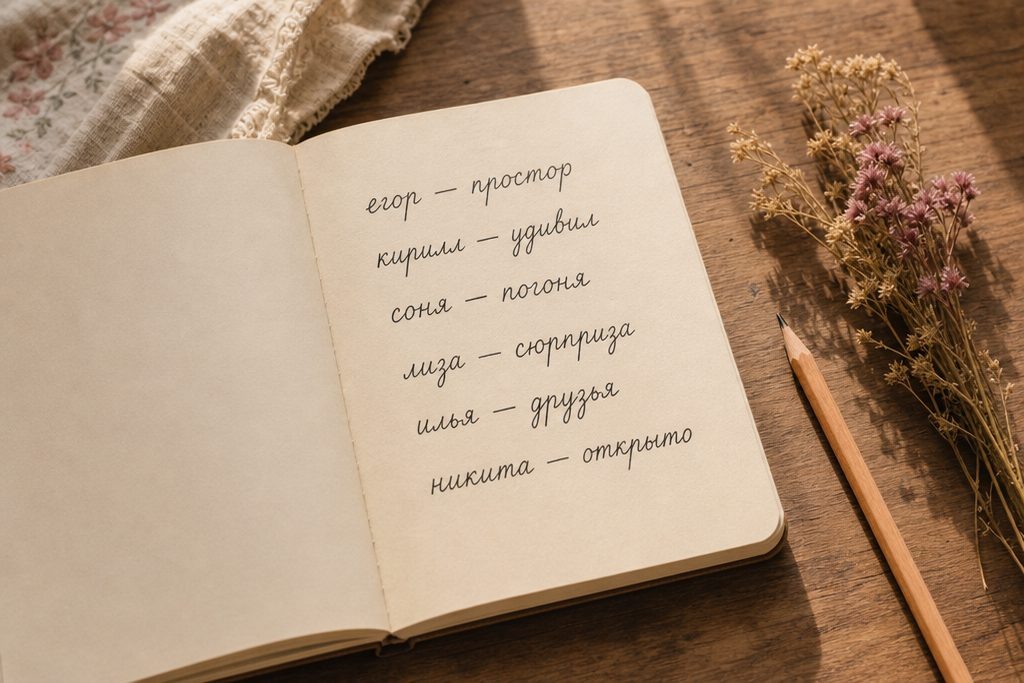 егор — простор
кирилл — удивил
соня — погоня
лиза — сюрприза
илья — друзья
никита — открыто